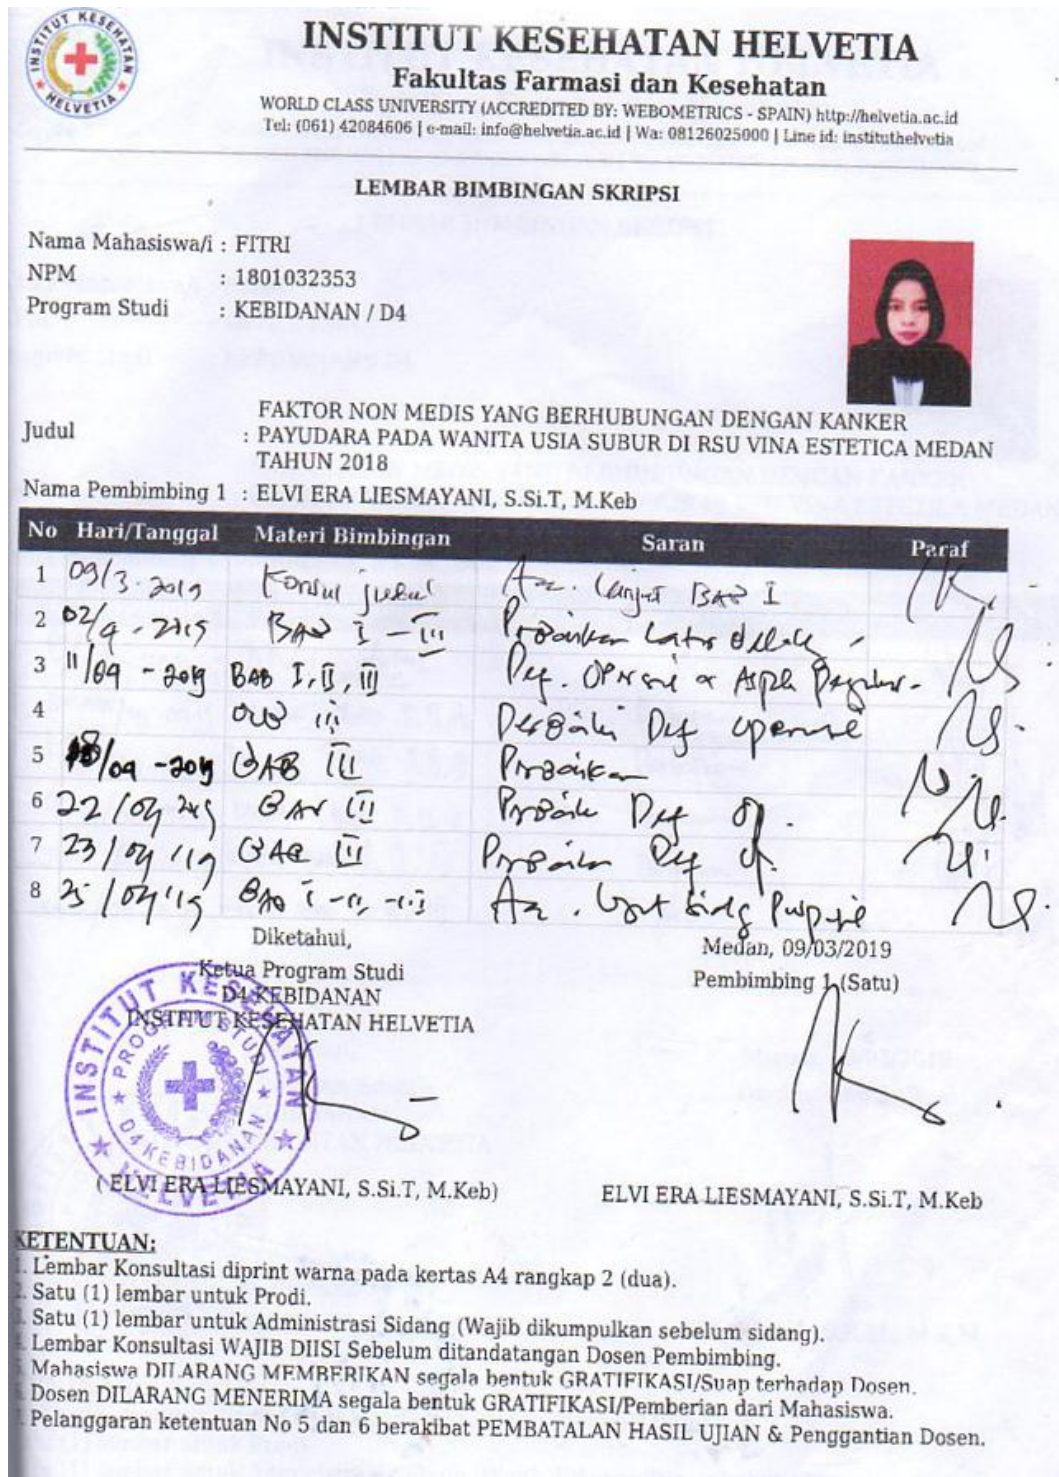 INSTITUT KESEHATAN HELVETIA
INSTITUT KESEHATAN HELVETIA
Fakultas Farmasi dan Kesehatan
WORLD CLASS UNIVERSITY (ACCREDITED BY: WEBOMETRICS - SPAIN) http://helvetia.ac.id
Tel: (061) 42084606 | e-mail: info@helvetia.ac.id | Wa: 08126025000 | Line id: instituthelvetia
LEMBAR BIMBINGAN SKRIPSI
Nama Mahasiswa/i : FITRI
NPM : 1801032353
Program Studi : KEBIDANAN / D4
FAKTOR NON MEDIS YANG BERHUBUNGAN DENGAN KANKER
Judul : PAYUDARA PADA WANITA USIA SUBUR DI RSU VINA ESTETICA MEDAN
TAHUN 2018
Nama Pembimbing 1 : ELVI ERA LIESMAYANI, S.Si.T, M.Keb
No Hari/Tanggal Materi Bimbingan Saran Paraf
1 09/3-2019 Konsul judul Acc. lanjut BAB I
2 BAB I - III Perbaikan
3 11/04-2019 BAB I, II, III
4 III Perbaiki Def operasi
5 18/04-2019 BAB III Perbaikan
6 22/04 2019 BAB III Perbaiki Def Op.
7 23/04/19 BAB III Perbaikan Def Op.
8 25/04/19 BAB I - II - III Acc.
Diketahui,
Ketua Program Studi
D4 KEBIDANAN
INSTITUT KESEHATAN HELVETIA
Medan, 09/03/2019
Pembimbing 1 (Satu)
INSTITUT KESEHATAN HELVETIA
PROGRAM STUDI
D4 KEBIDANAN
( ELVI ERA LIESMAYANI, S.Si.T, M.Keb)
ELVI ERA LIESMAYANI, S.Si.T, M.Keb
KETENTUAN:
1. Lembar Konsultasi diprint warna pada kertas A4 rangkap 2 (dua).
2. Satu (1) lembar untuk Prodi.
3. Satu (1) lembar untuk Administrasi Sidang (Wajib dikumpulkan sebelum sidang).
4. Lembar Konsultasi WAJIB DIISI Sebelum ditandatangan Dosen Pembimbing.
5. Mahasiswa DILARANG MEMBERIKAN segala bentuk GRATIFIKASI/Suap terhadap Dosen.
6. Dosen DILARANG MENERIMA segala bentuk GRATIFIKASI/Pemberian dari Mahasiswa.
7. Pelanggaran ketentuan No 5 dan 6 berakibat PEMBATALAN HASIL UJIAN & Penggantian Dosen.